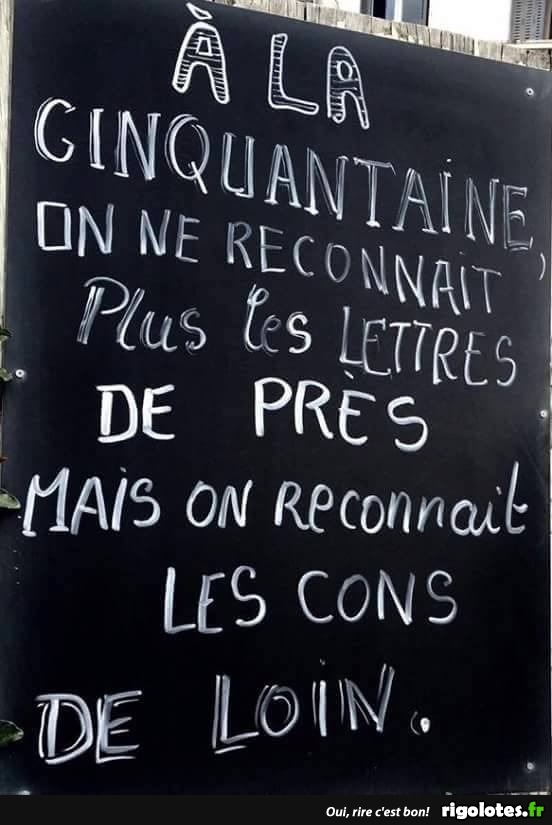 À LA
CINQUANTAINE,
ON NE RECONNAIT
Plus les LETTRES
DE PRÈS
MAIS ON Reconnait
LES CONS
DE LOIN.
Oui, rire c'est bon! rigolotes.fr